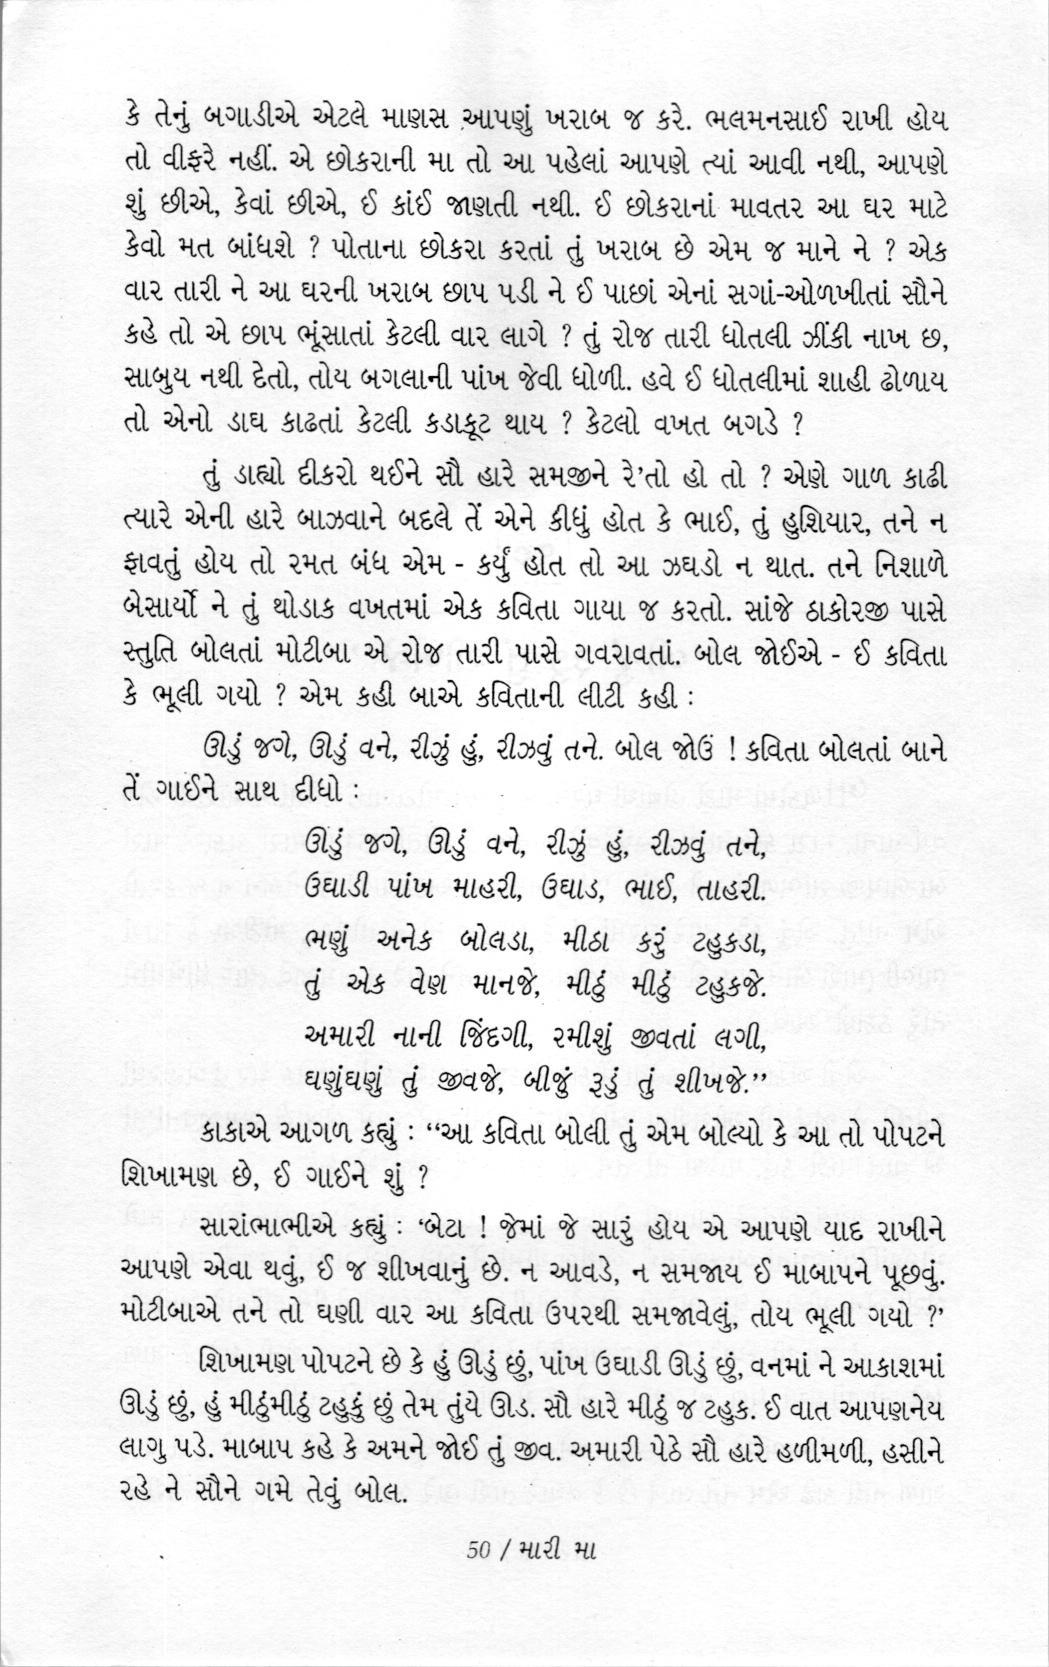 કે તેનું બગાડીએ એટલે માણસ આપણું ખરાબ જ કરે. ભલમનસાઈ રાખી હોય
તો વીફરે નહીં. એ છોકરાની મા તો આ પહેલાં આપણે ત્યાં આવી નથી, આપણે
શું છીએ, કેવાં છીએ, ઈ કાંઈ જાણતી નથી. ઈ છોકરાનાં માવતર આ ઘર માટે
કેવો મત બાંધશે ? પોતાના છોકરા કરતાં તું ખરાબ છે એમ જ માને ને ? એક
વાર તારી ને આ ઘરની ખરાબ છાપ પડી ને ઈ પાછાં એનાં સગાં-ઓળખીતાં સૌને
કહે તો એ છાપ ભૂંસાતાં કેટલી વાર લાગે ? તું રોજ તારી ધોતલી ઝીંકી નાખ છ,
સાબુય નથી દેતો, તોય બગલાની પાંખ જેવી ધોળી. હવે ઈ ધોતલીમાં શાહી ઢોળાય
તો એનો ડાઘ કાઢતાં કેટલી કડાકૂટ થાય ? કેટલો વખત બગડે ?
તું ડાહ્યો દીકરો થઈને સૌ હારે સમજીને રે'તો હો તો ? એણે ગાળ કાઢી
ત્યારે એની હારે બાઝવાને બદલે તેં એને કીધું હોત કે ભાઈ, તું હુશિયાર, તને ન
ફાવતું હોય તો રમત બંધ એમ - કર્યું હોત તો આ ઝઘડો ન થાત. તને નિશાળે
બેસાર્યો ને તું થોડાક વખતમાં એક કવિતા ગાયા જ કરતો. સાંજે ઠાકોરજી પાસે
સ્તુતિ બોલતાં મોટીબા એ રોજ તારી પાસે ગવરાવતાં. બોલ જોઈએ - ઈ કવિતા
કે ભૂલી ગયો ? એમ કહી બાએ કવિતાની લીટી કહી :
ઊડું જગે, ઊડું વને, રીઝું હું, રીઝવું તને. બોલ જોઉં ! કવિતા બોલતાં બાને
તેં ગાઈને સાથ દીધો :
ઊડું જગે, ઊડું વને, રીઝું હું, રીઝવું તને,
ઉઘાડી પાંખ માહરી, ઉઘાડ, ભાઈ, તાહરી.
ભણું અનેક બોલડા, મીઠા કરું ટહુકડા,
તું એક વેણ માનજે, મીઠું મીઠું ટહુકજે.
અમારી નાની જિંદગી, રમીશું જીવતાં લગી,
ઘણુંઘણું તું જીવજે, બીજું રૂડું તું શીખજે.”
કાકાએ આગળ કહ્યું : “આ કવિતા બોલી તું એમ બોલ્યો કે આ તો પોપટને
શિખામણ છે, ઈ ગાઈને શું ?
સારાંભાભીએ કહ્યું : ‘બેટા ! જેમાં જે સારું હોય એ આપણે યાદ રાખીને
આપણે એવા થવું, ઈ જ શીખવાનું છે. ન આવડે, ન સમજાય ઈ માબાપને પૂછવું.
મોટીબાએ તને તો ઘણી વાર આ કવિતા ઉપરથી સમજાવેલું, તોય ભૂલી ગયો ?’
શિખામણ પોપટને છે કે હું ઊડું છું, પાંખ ઉઘાડી ઊડું છું, વનમાં ને આકાશમાં
ઊડું છું, હું મીઠુંમીઠું ટહુકું છું તેમ તુંયે ઊડ. સૌ હારે મીઠું જ ટહુક. ઈ વાત આપણનેય
લાગુ પડે. માબાપ કહે કે અમને જોઈ તું જીવ. અમારી પેઠે સૌ હારે હળીમળી, હસીને
રહે ને સૌને ગમે તેવું બોલ.
50 / મારી મા